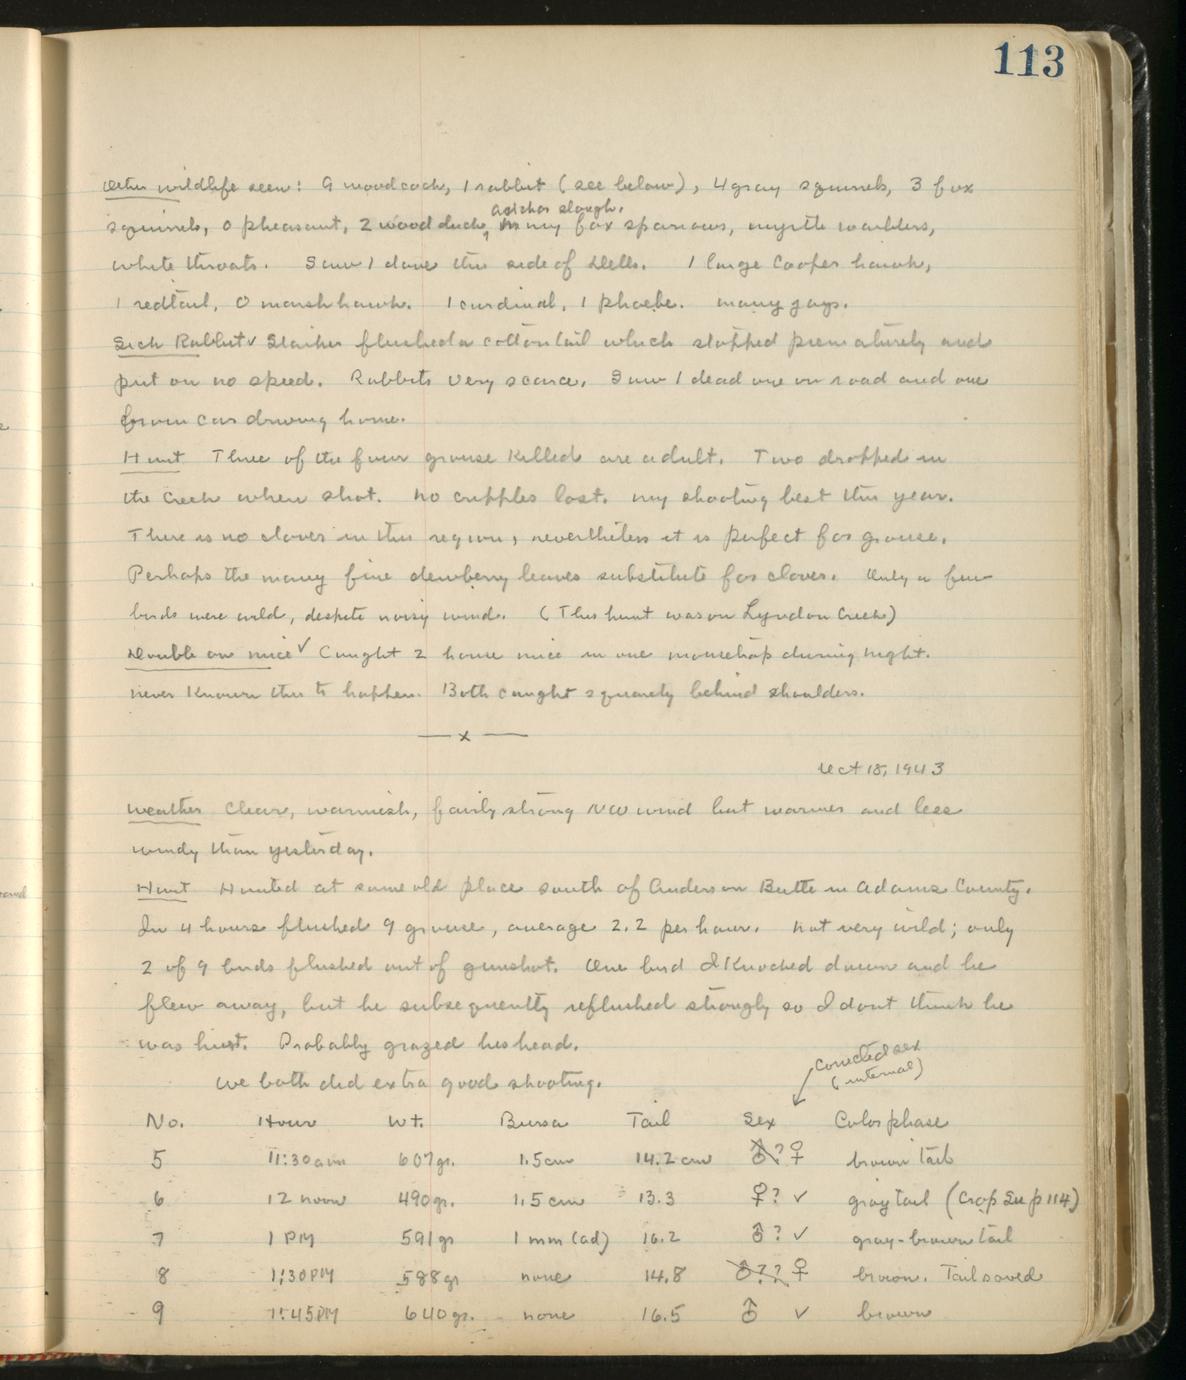 113
Other wildlife seen: 9 woodcock, 1 rabbit (see below), 4 gray squirrels, 3 fox
slough.
squirrels, 0 pheasant, 2 wood duck, many fox sparrows, myrtle warblers,
white throats. Saw 1 dove this side of Dells. 1 large Cooper hawk,
1 redtail, 0 marsh hawk. 1 cardinal, 1 phoebe. many jays.
Sick Rabbit ✓ Starker flushed a cottontail which stopped prematurely and
put on no speed. Rabbits very scarce. Saw 1 dead one on road and one
from car driving home.
Hunt Three of the four grouse killed are adult. Two dropped in
the creek when shot. No cripples lost. My shooting best this year.
There is no clover in this region, nevertheless it is perfect for grouse.
Perhaps the many fine dewberry leaves substitute for clover. Only a few
birds were wild, despite noisy wind. (This hunt was on Lyndon Creek)
Double on mice ✓ Caught 2 house mice in one mousetrap during night.
Never known this to happen. Both caught squarely behind shoulders.
— x —
Oct 18, 1943
Weather Clear, warmish, fairly strong NW wind but warmer and less
windy than yesterday.
Hunt Hunted at same old place south of Anderson Butte in Adams County.
In 4 hours flushed 9 grouse, average 2.2 per hour. Not very wild; only
2 of 9 birds flushed out of gunshot. One bird I knocked down and he
flew away, but he subsequently reflushed strongly so I dont think he
was hurt. Probably grazed his head.
We both did extra good shooting.
corrected sex
(internal)
No. Hour Wt. Bursa Tail Sex Color phase
5 11:30 am 607 gr. 1.5 cm 14.2 cm ♂? ♀ brown tail
6 12 noon 490 gr. 1.5 cm 13.3 ♀? ✓ gray tail (Crop See p 114)
7 1 PM 591 gr 1 mm (ad) 16.2 ♂? ✓ gray-brown tail
8 1:30 PM 588 gr none 14.8 ♂?? ♀ brown. Tail saved
9 1:45 PM 640 gr. none 16.5 ♂ ✓ brown